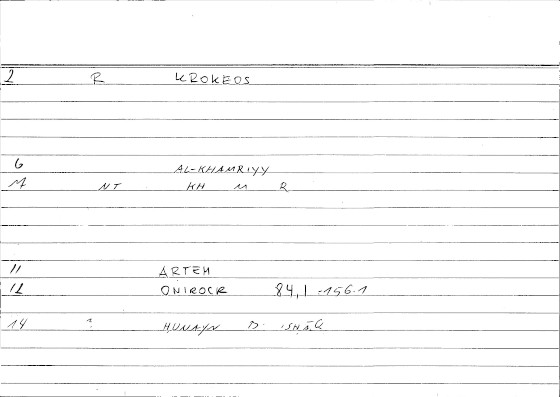 2 R KROKEOS
6 AL-KHAMRIYY
NT KH M R
11 ARTEM
12 ONIROCR 84,1 -156.1
14 ? HUNAYN B. ISHĀQ